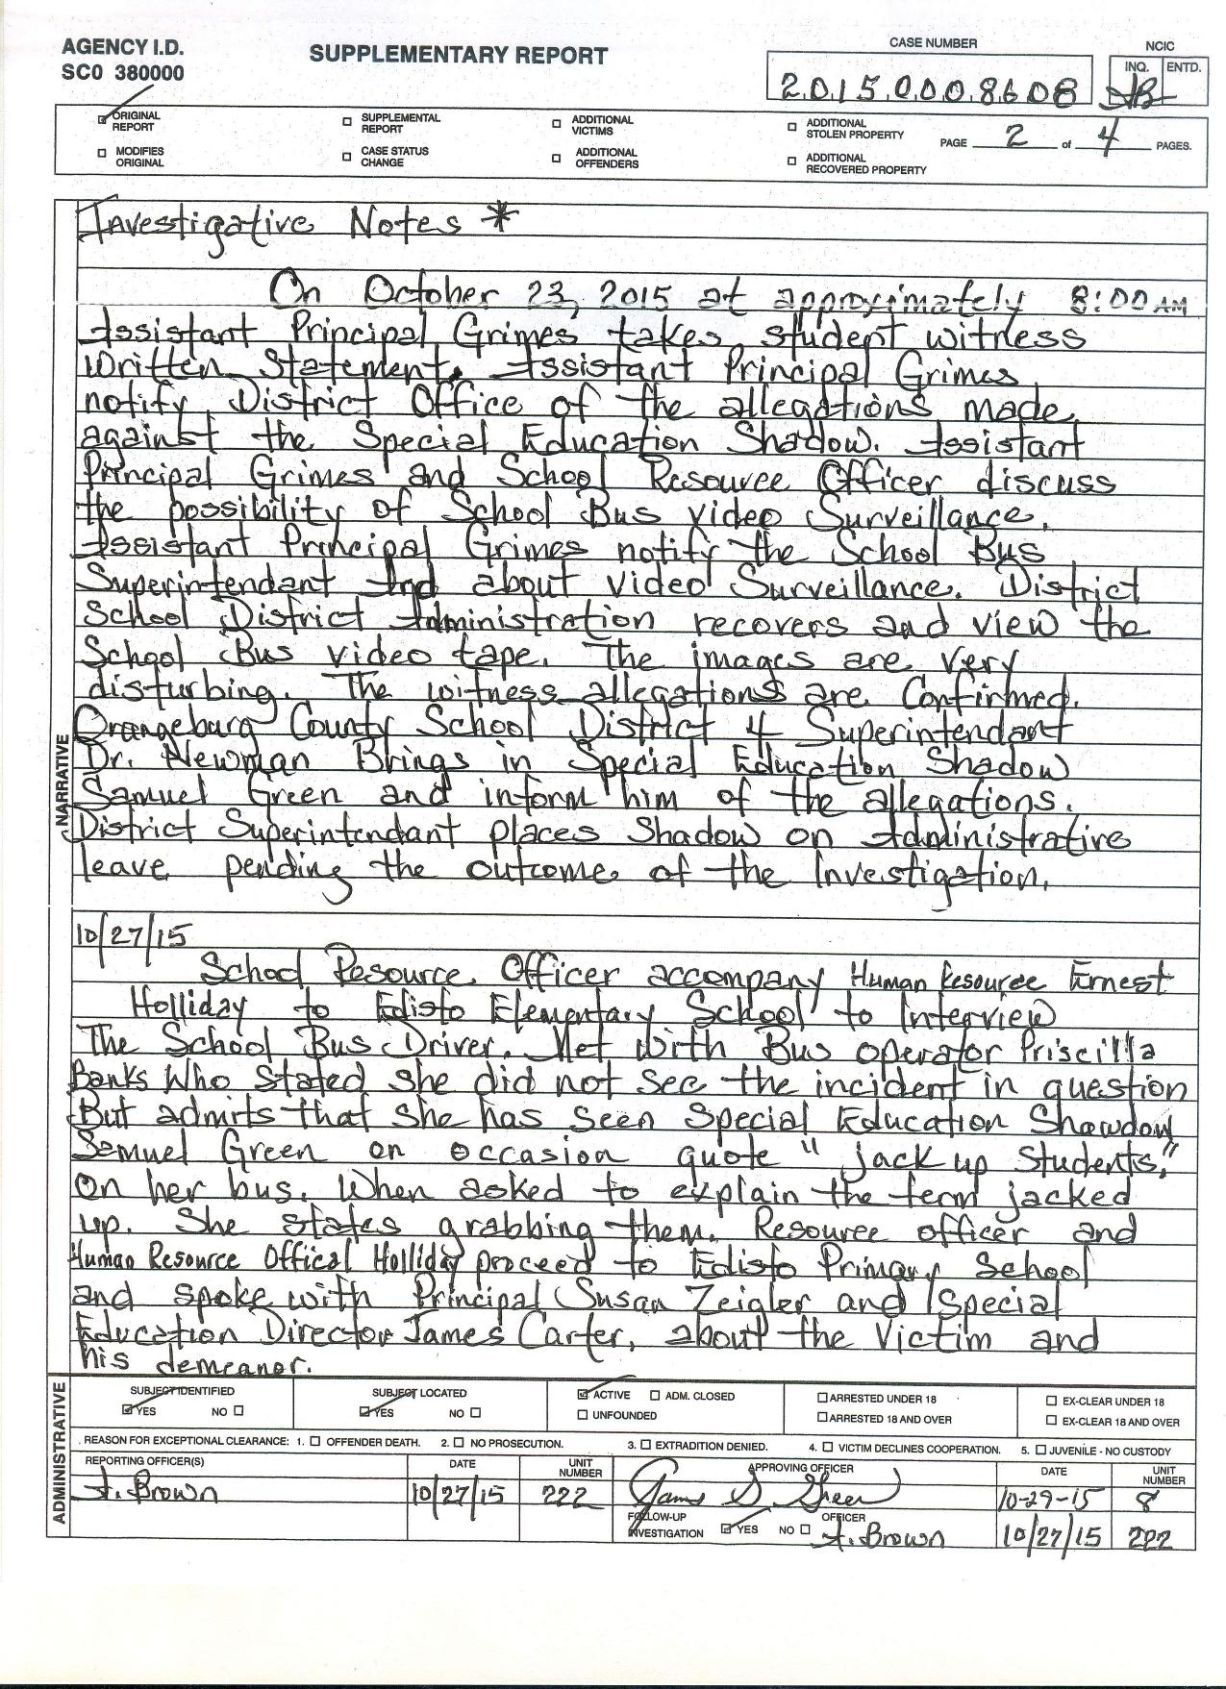 AGENCY I.D.
SC0 380000
SUPPLEMENTARY REPORT
CASE NUMBER
2.0.1.5.0.0.0.8.6.0.8
NCIC
INQ. ENTD.
AB
ORIGINAL REPORT
SUPPLEMENTAL REPORT
ADDITIONAL VICTIMS
ADDITIONAL STOLEN PROPERTY
PAGE 2 of 4 PAGES.
MODIFIES ORIGINAL
CASE STATUS CHANGE
ADDITIONAL OFFENDERS
ADDITIONAL RECOVERED PROPERTY
NARRATIVE
Investigative Notes *
On October 23, 2015 at approximately 8:00 AM
Assistant Principal Grimes takes student witness
Written Statement. Assistant Principal Grimes
notify District Office of the allegations made
against the Special Education Shadow. Assistant
Principal Grimes and School Resource Officer discuss
the possibility of School Bus video Surveillance.
Assistant Principal Grimes notify the School Bus
Superintendant And about video Surveillance. District
School District Administration recovers and view the
School Bus video tape. The images are very
disturbing. The witness allegations are Confirmed.
Orangeburg County School District 4 Superintendant
Dr. Newman Brings in Special Education Shadow
Samuel Green and inform him of the allegations.
District Superintendant places Shadow on Administrative
leave pending the outcome of the Investigation.
10/27/15
School Resource Officer accompany Human Resource Ernest
Holliday to Edisto Elementary School to Interview
The School Bus Driver. Met With Bus operator Priscilla
Banks Who Stated She did not See the incident in question
But admits that She has Seen Special Education Shawdow
Samuel Green on occasion quote "jack up Students,"
On her bus. When asked to explain the term jacked
up. She states grabbing them. Resource officer and
Human Resource Offical Holliday proceed to Edisto Primary School
and spoke with Principal Susan Zeigler and Special
Education Director James Carter, about the Victim and
his demeanor.
ADMINISTRATIVE
SUBJECT IDENTIFIED
YES NO
SUBJECT LOCATED
YES NO
ACTIVE ADM. CLOSED
UNFOUNDED
ARRESTED UNDER 18
ARRESTED 18 AND OVER
EX-CLEAR UNDER 18
EX-CLEAR 18 AND OVER
REASON FOR EXCEPTIONAL CLEARANCE: 1. OFFENDER DEATH. 2. NO PROSECUTION. 3. EXTRADITION DENIED. 4. VICTIM DECLINES COOPERATION. 5. JUVENILE - NO CUSTODY
REPORTING OFFICER(S) DATE UNIT NUMBER
A. Brown 10/27/15 222
APPROVING OFFICER DATE UNIT NUMBER
10-29-15 8
FOLLOW-UP INVESTIGATION YES NO OFFICER
A. Brown 10/27/15 222